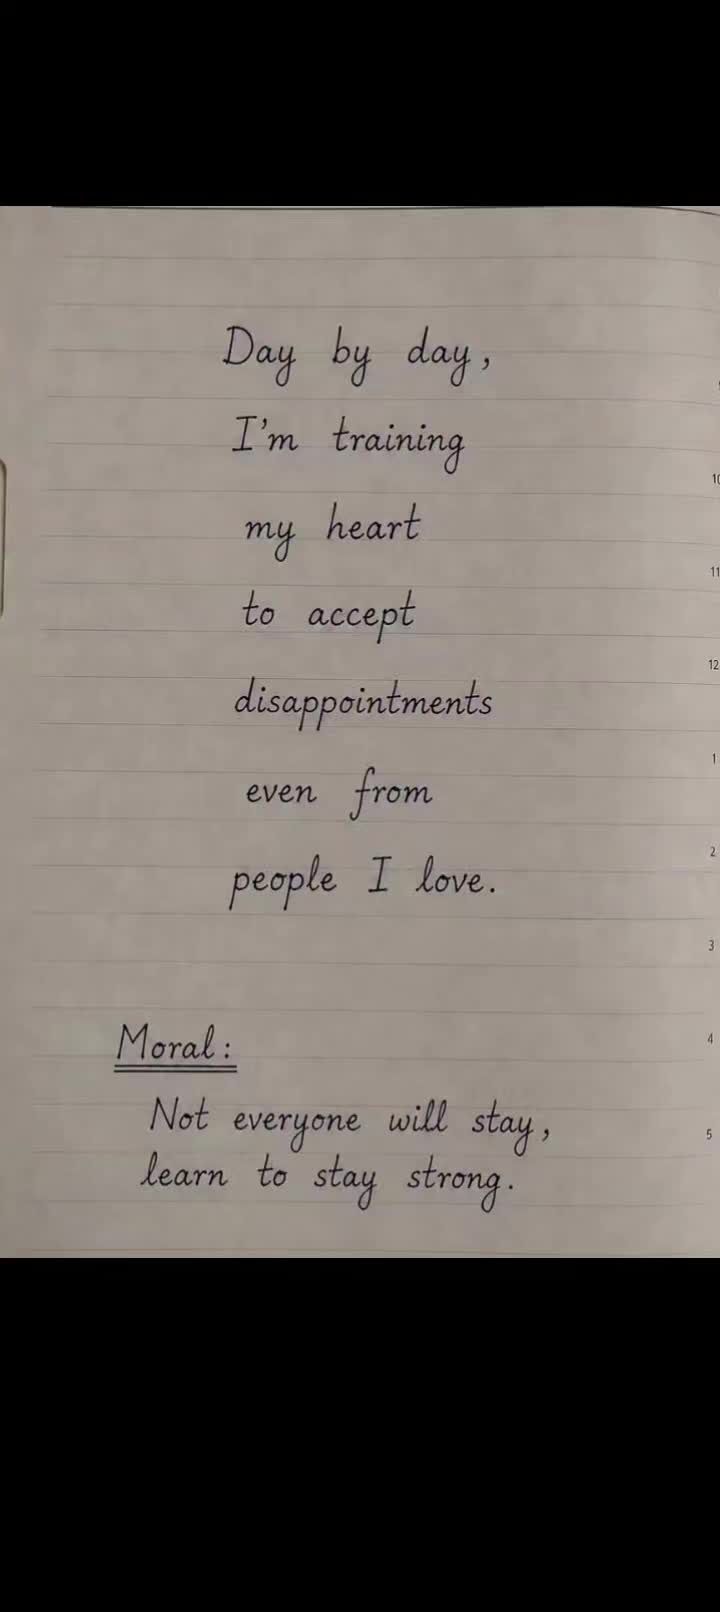 Day by day,
I'm training
my heart
to accept
disappointments
even from
people I love.
Moral:
Not everyone will stay,
learn to stay strong.
10
11
12
1
2
3
4
5